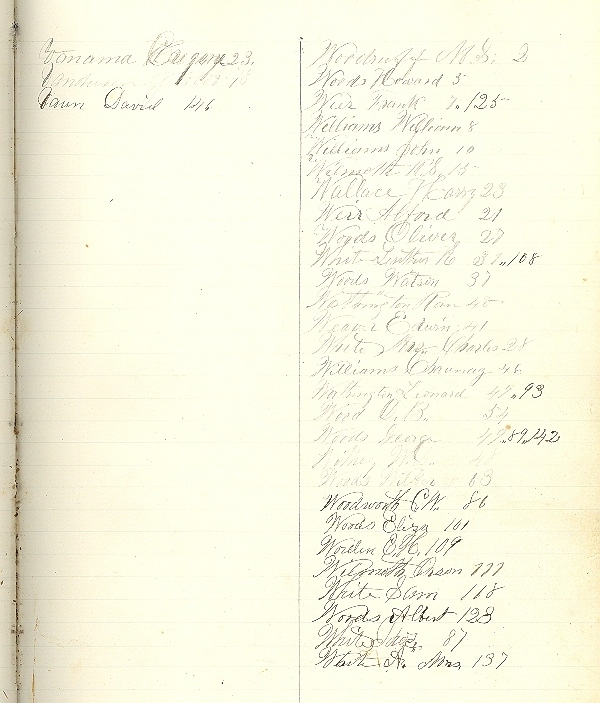 Vonama Gregory 23.
Vaun David 146
Woodruff M. S. 2
Woods Howard 5
Weir Frank 7, 125
Williams William 8
Williams John 10
Wilmoth N.S. 15
Wallace Harry 23
Weir Alford 21
Woods Oliver 27
White Luther R 37, 108
Woods Watson 37
Wathington Ran 40
Weaver Edwin 41
White Mrs. Charles 28
Williams Chauncy 46
Wathington Leonard 47, 93
Wood O. R. 54
Woods George 49, 89, 142
Woods 63
Woodworth C.W. 86
Woods Eliza 101
Worden E.H. 109
Wilmoth Orson 111
White Sam 118
Woods Albert 123
White 87
A. Mrs 137